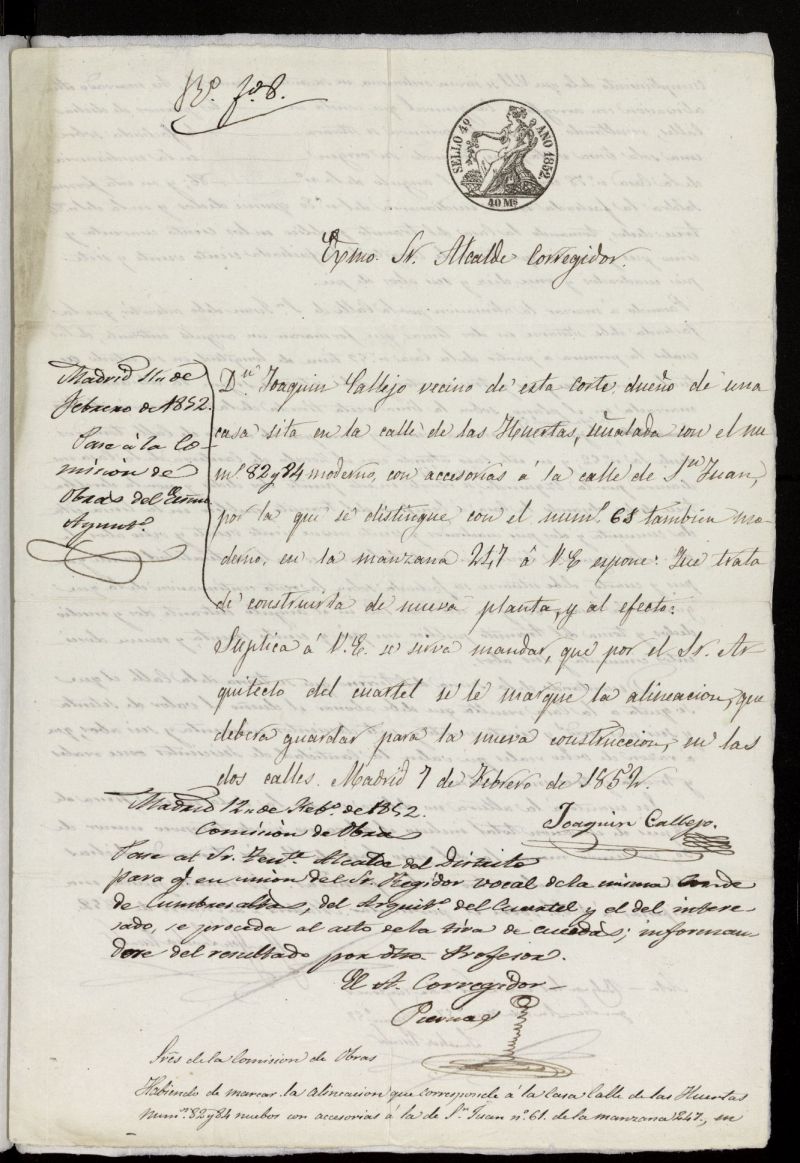 SELLO 4º AÑO 1852.
40 Ms
Exmo. Sr. Alcalde Corregidor.
Madrid 11,, de
Febrero de 1852.
Pase à la Co-
mision de
Obras del Exmo
Ayuntº.
Dn. Joaquin Callejo vecino de esta corte, dueño de una
casa sita en la calle de las Huertas, señalada con el nu
mº. 82 y 84 moderno, con accesorias á la calle de Sn. Juan,
por la que se distingue con el numº. 61 tambien mo-
derno, en la manzana 247 á V.E. expone: Que trata
de construirla de nueva planta, y al efecto:
Suplica á V.E. se sirva mandar, que por el Sr. Ar
quitecto del cuartel se le marque la alineacion, que
deberá guardar para la nueva construccion, en las
dos calles. Madrid 7 de Febrero de 1852.
Joaquin Callejo.
Madrid 12,, de Febº. de 1852.
Comision de Obras
Pase al Sr. Tente. Alcalde del Distrito
para q. en union del Sr. Regidor vocal de la misma Conde
de Cumbres altas, del Arquitº. del Cuartel y el del intere-
sado, se proceda al acto de la tira de cuerdas; informan
dose del resultado por dho. Profesor.
El A. Corregidor
Sres de la Comision de Obras
Habiendo de marcar la alineacion que corresponde á la Casa Calle de las Huertas
numº. 82 y 84 nuebos con accesorias á la de Sn. Juan nº. 61. de la manzana 247, en